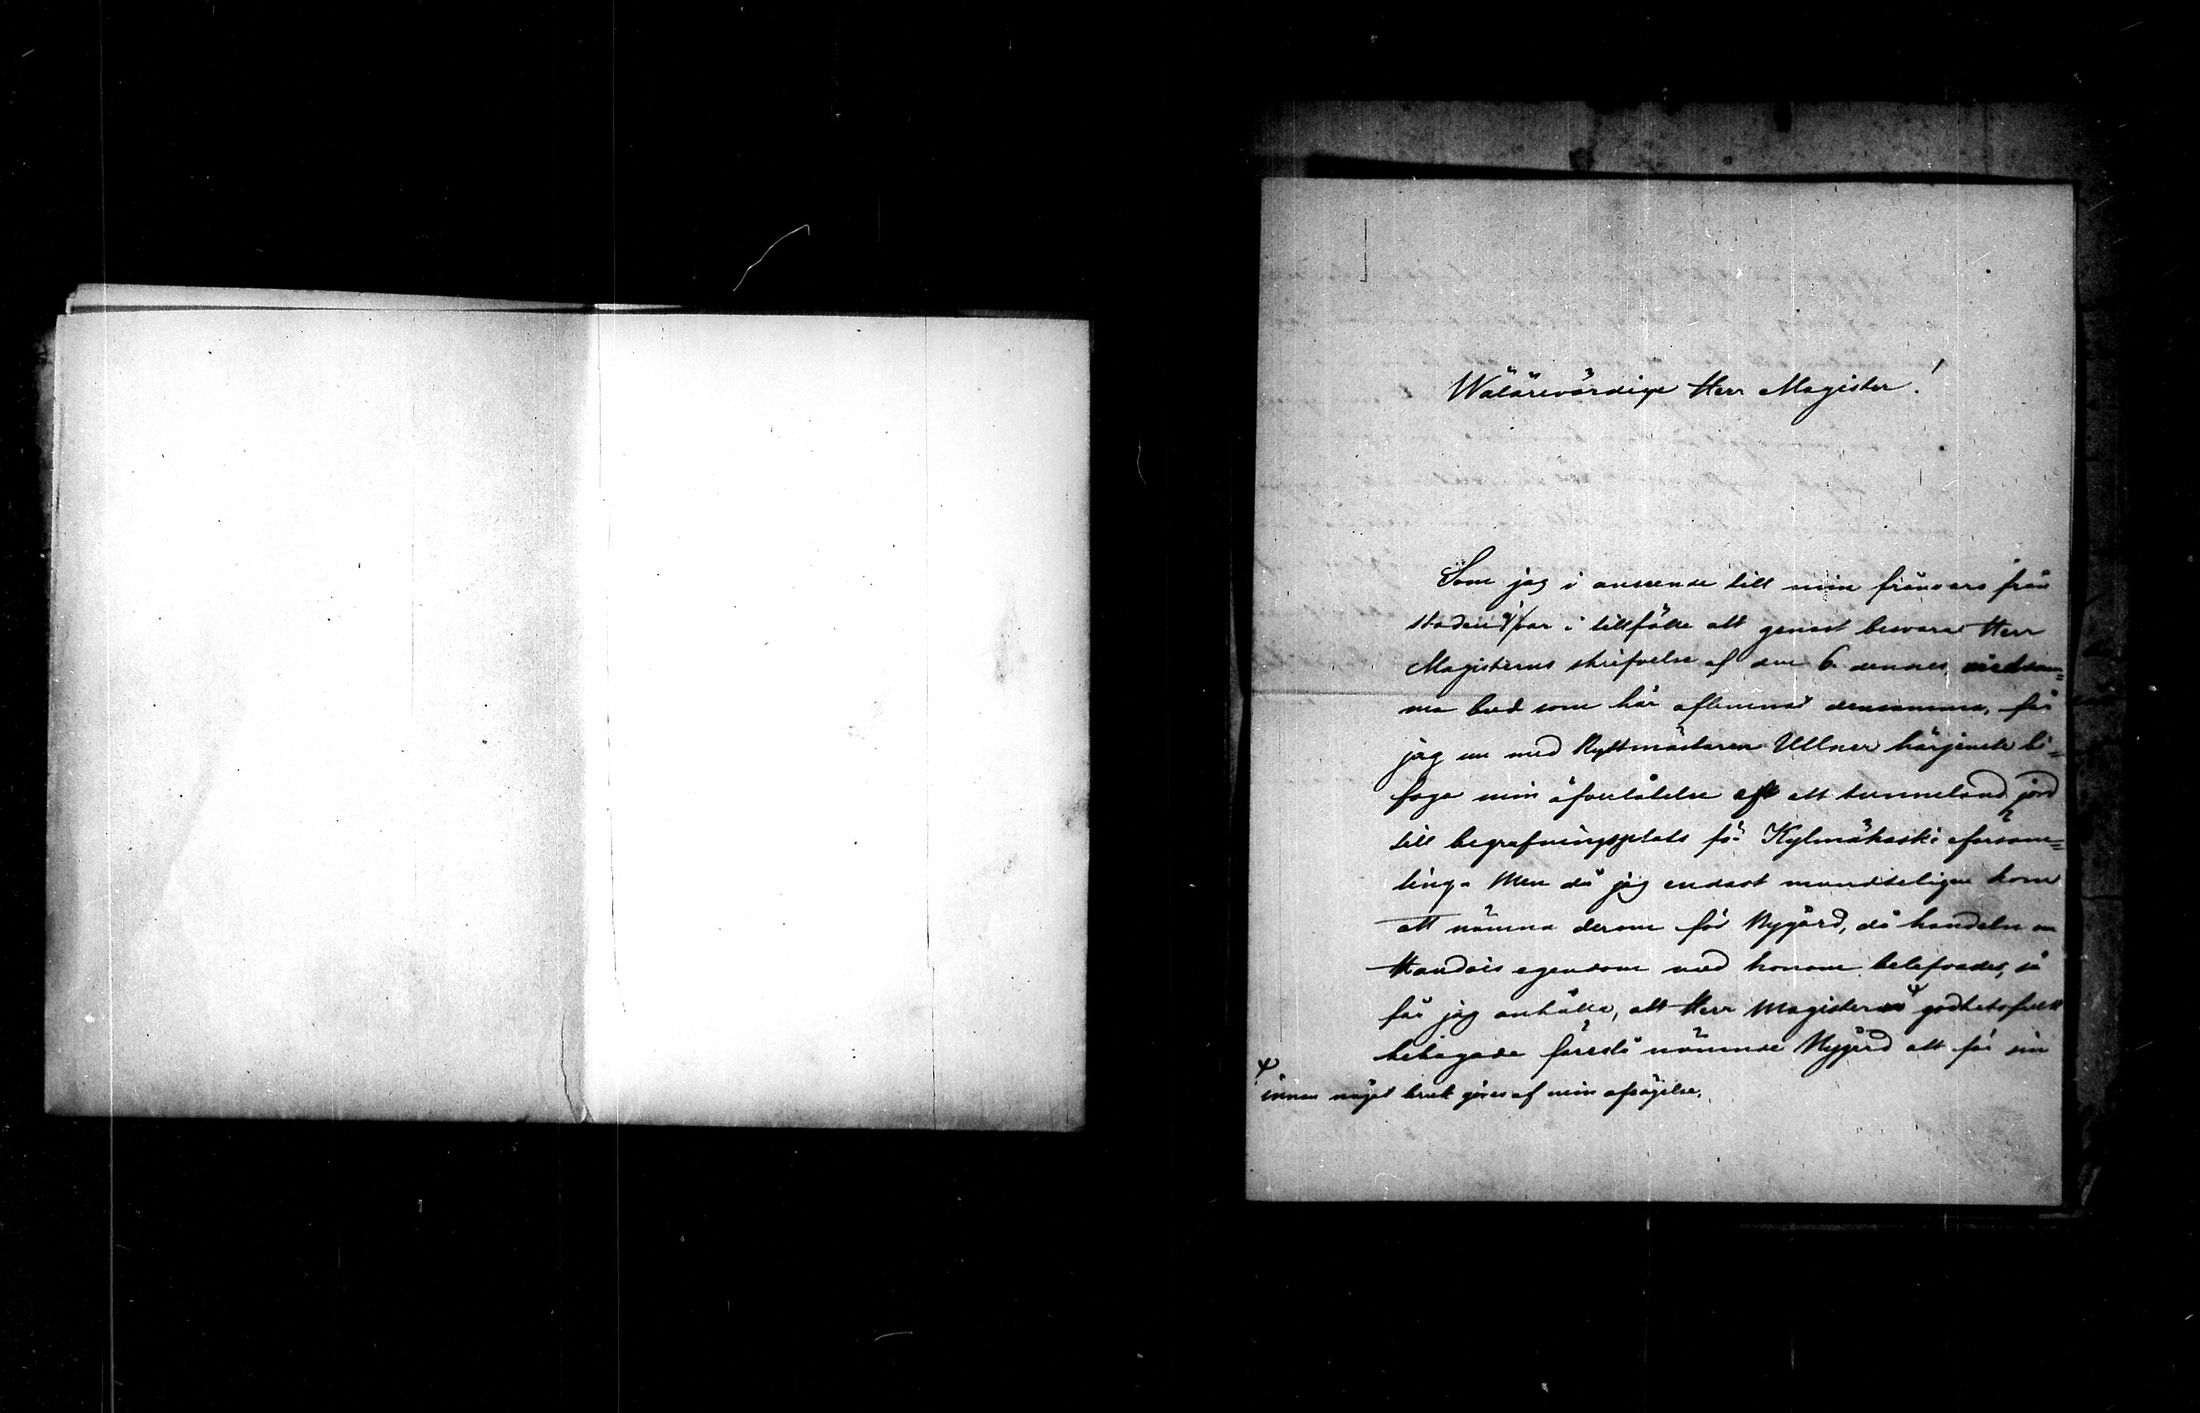 Wälärevördige Herr Magister!
Som jag i anseende till min frånvaro från
staden ej var i tillfälle att genast besvara Herr
Magisterns skrifvelse af den 6 dennes, medsam=
ma bud som här aflemnat densamma, får
jag nu med Ryttmästaren Ullner härjemte bi=
foga min åfverlåtelse af ett tunneland jord
till begrafningsplats för Kylmäkoski församm=
ling. Men då jag endast mundteligen kom
att nämna derom för Nygård, då handeln om
egendom med honom belefvades, så
får jag anhålla, att Herr Magistern ⸸ godhetsfullt
behagade förestå nämnde Nygård att för sin
⸸
innan något bruk göres af min afsägelse.